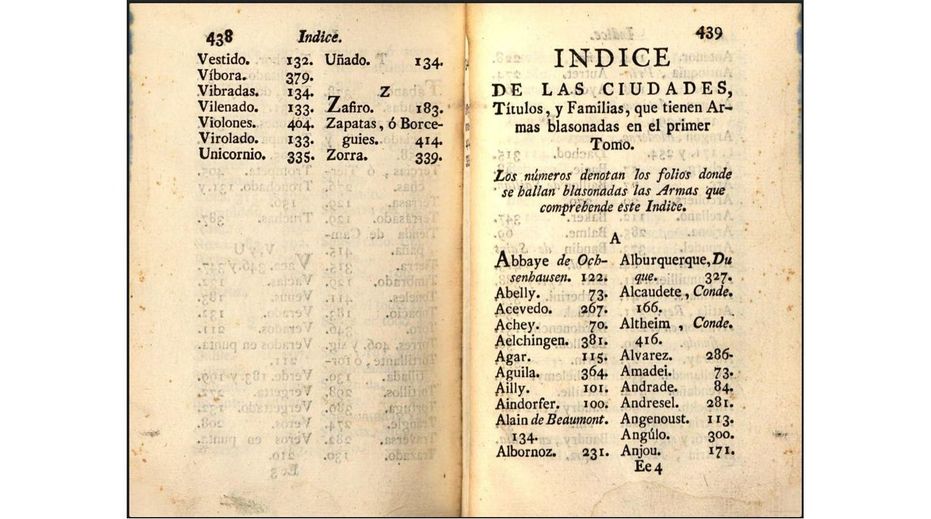 438 Indice.
Vestido. 132.
Víbora. 379.
Vibradas. 134.
Vilenado. 133.
Violones. 404.
Virolado. 133.
Unicornio. 335.
Uñado. 134.
Z
Zafiro. 183.
Zapatas, ó Borce-
guies. 414.
Zorra. 339.
439
INDICE
DE LAS CIUDADES,
Títulos, y Familias, que tienen Ar-
mas blasonadas en el primer
Tomo.
Los números denotan los folios donde
se hallan blasonadas las Armas que
comprehende este Indice.
A
Abbaye de Och-
senhausen. 122.
Abelly. 73.
Acevedo. 267.
Achey. 70.
Aelchingen. 381.
Agar. 115.
Aguila. 364.
Ailly. 101.
Aindorfer. 100.
Alain de Beaumont.
134.
Albornoz. 231.
Alburquerque, Du
que. 327.
Alcaudete, Conde.
166.
Altheim, Conde.
416.
Alvarez. 286.
Amadei. 73.
Andrade. 84.
Andresel. 281.
Angenoust. 113.
Angúlo. 300.
Anjou. 171.
Ee 4